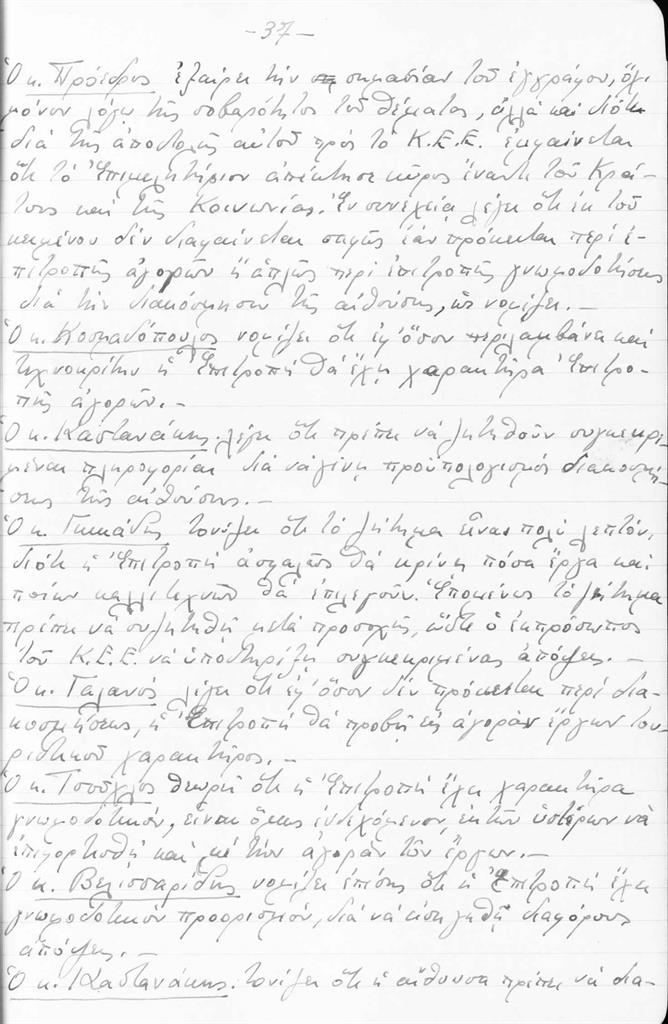 -37-
Ὁ κ. Πρόεδρος ἐξαίρει τήν σημασίαν τοῦ ἐγγράφου, ὄχι
μόνον λόγῳ τῆς σοβαρότητος τοῦ θέματος, ἀλλά καί διότι
διά τῆς ἀποστολῆς αὐτοῦ πρός τό Κ.Ε.Ε. ἐμφαίνεται
ὅτι τό Ἐπιμελητήριον ἀπέκτησε κῦρος ἔναντι τοῦ Κρά-
τους καί τῆς Κοινωνίας. Ἐν συνεχείᾳ λέγει ὅτι ἐκ τοῦ
κειμένου δέν διαφαίνεται σαφῶς ἐάν πρόκειται περί ἐ-
πιτροπῆς ἀγορῶν ἤ ἁπλῶς περί ἐπιτροπῆς γνωμοδοτήσεως
διά τήν διακόσμησιν τῆς αἰθούσης, ὡς νομίζει.-
Ὁ κ. Κοσμαδόπουλος νομίζει ὅτι ἐφ' ὅσον περιλαμβάνει καί
τεχνοκρίτην ἡ Ἐπιτροπή θά ἔχῃ χαρακτῆρα Ἐπιτρο-
πῆς ἀγορῶν.-
Ὁ κ. Καστανάκης λέγει ὅτι πρέπει νά ζητηθοῦν συγκεκρι-
μέναι πληροφορίαι διά νά γίνῃ προϋπολογισμός διακοσμή-
σεως τῆς αἰθούσης.-
Ὁ κ. τονίζει ὅτι τό ζήτημα εἶναι πολύ λεπτόν,
διότι ἡ Ἐπιτροπή ἀσφαλῶς θά κρίνῃ πόσα ἔργα καί
ποίων καλλιτεχνῶν θά ἐπιλεγοῦν. Ἑπομένως τό ζήτημα
πρέπει νά συζητηθῇ μετά προσοχῆς, ὥστε ὁ ἐκπρόσωπος
τοῦ Κ.Ε.Ε. νά ὑποστηρίξῃ συγκεκριμένας ἀπόψεις.-
Ὁ κ. Γαλανός λέγει ὅτι ἐφ' ὅσον δέν πρόκειται περί δια-
κοσμήσεως, ἡ Ἐπιτροπή θά προβῇ εἰς ἀγοράν ἔργων του-
ριστικοῦ χαρακτῆρος.-
Ὁ κ. θεωρεῖ ὅτι ἡ Ἐπιτροπή ἔχει χαρακτῆρα
γνωμοδοτικόν, εἶναι ὅμως ἐνδεχόμενον, ἐκ τῶν ὑστέρων νά
ἐπιφορτισθῇ καί μέ τήν ἀγοράν τῶν ἔργων.-
Ὁ κ. Βελισσαρίδης νομίζει ἐπίσης ὅτι ἡ Ἐπιτροπή ἔχει
γνωμοδοτικόν προορισμόν, διά νά εἰσηγηθῇ διαφόρους
ἀπόψεις.-
Ὁ κ. Καστανάκης τονίζει ὅτι ἡ αἴθουσα πρέπει νά δια-